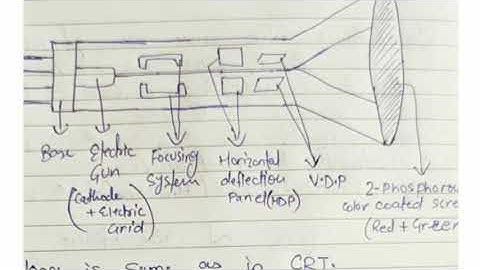 Base
Electric
Gun
(Cathode
+ Electric
Grid)
Focusing
System
Horizontal
deflection
Panel(HDP)
V.D.P
2-Phosphorou
color coated scre
(Red + Green
is same as in CRT.